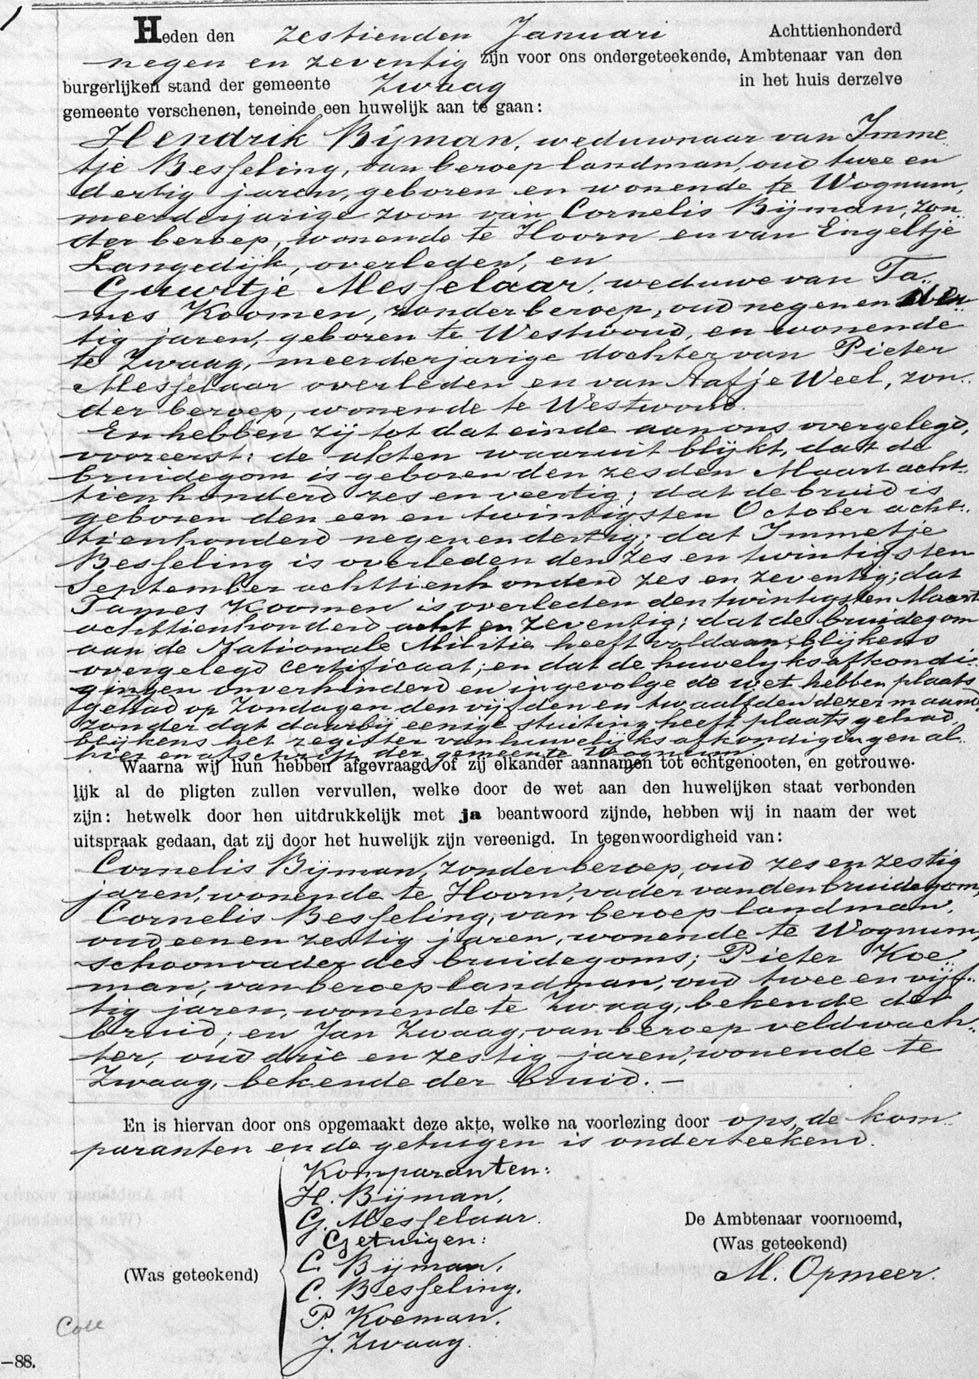 1
Heden den zestienden Januari Achttienhonderd
negen en zeventig zijn voor ons ondergeteekende, Ambtenaar van den
burgerlijken stand der gemeente Zwaag in het huis derzelve
gemeente verschenen, teneinde een huwelijk aan te gaan:
Hendrik Bijman, weduwnaar van Imme
tje Besseling, van beroep landman, oud twee en
dertig jaren, geboren en wonende te Wognum,
meerderjarige zoon van Cornelis Bijman, zon
der beroep, wonende te Hoorn en van Engeltje
Langedijk, overleden, en
Guurtje Messelaar, weduwe van Ta..
mes Koomen, zonder beroep, oud negen en der
tig jaren, geboren te Westwoud, en wonende
te Zwaag, meerderjarige dochter van Pieter
Messelaar overleden en van Aafje Weel, zon..
der beroep, wonende te Westwoud.
En hebben zij tot dat einde aan ons overgelegd,
vooreerst: de akten waaruit blijkt, dat de
bruidegom is geboren den zesden Maart acht..
tienhonderd zes en veertig; dat de bruid is
geboren den een en twintigsten October acht..
tienhonderd negen en dertig; dat Immetje
Besseling is overleden den zes en twintigsten
September achttienhonderd zes en zeventig; dat
Tames Koomen is overleden den twintigsten Maart
achttienhonderd acht en zeventig; dat de bruidegom
aan de Nationale Militie heeft voldaan, blijkens
overgelegd certificaat; en dat de huwelijksafkondi..
gingen onverhinderd en ingevolge de wet hebben plaats
gehad op Zondagen den vijfden en twaalfden dezer maand
zonder dat daarbij eenige stuiting heeft plaats gehad
blijkens het register van huwelijksafkondigingen al..
hier en afschrift der gemeente Wognum.
Waarna wij hun hebben afgevraagd of zij elkander aannamen tot echtgenooten, en getrouwe-
lijk al de pligten zullen vervullen, welke door de wet aan den huwelijken staat verbonden
zijn: hetwelk door hen uitdrukkelijk met ja beantwoord zijnde, hebben wij in naam der wet
uitspraak gedaan, dat zij door het huwelijk zijn vereenigd. In tegenwoordigheid van:
Cornelis Bijman, zonder beroep, oud zes en zestig
jaren, wonende te Hoorn, vader van den bruidegom,
Cornelis Besseling, van beroep landman,
oud een en zestig jaren, wonende te Wognum,
schoonvader des bruidegoms; Pieter Koe..
man, van beroep landman, oud twee en vijf..
tig jaren, wonende te Zwaag, bekende der
bruid; en Jan Zwaag, van beroep veldwach..
ter, oud drie en zestig jaren, wonende te
Zwaag, bekende der bruid. —
En is hiervan door ons opgemaakt deze akte, welke na voorlezing door ons, de kom
paranten en de getuigen is onderteekend.
Komparanten:
H. Bijman,
G. Messelaar.
Getuigen:
C. Bijman,
C. Besseling,
P. Koeman,
J. Zwaag.
(Was geteekend)
De Ambtenaar voornoemd,
(Was geteekend)
M. Opmeer.
Coll
—88.